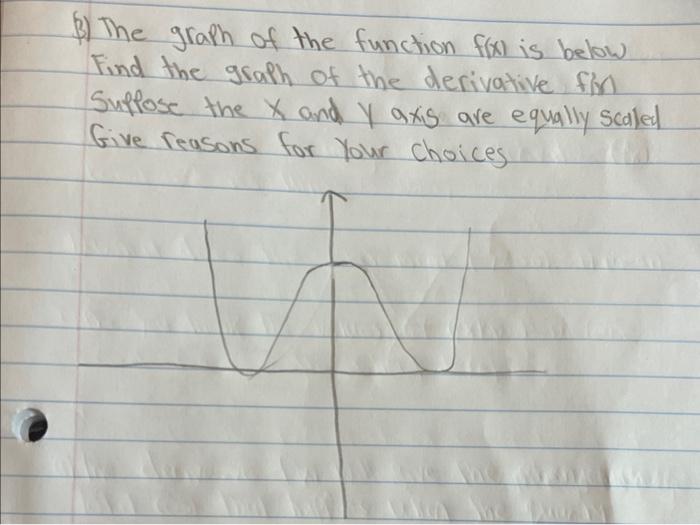 B) The graph of the function f(x) is below
Find the graph of the derivative f'(x)
Suppose the x and y axis are equally scaled
Give reasons for your choices